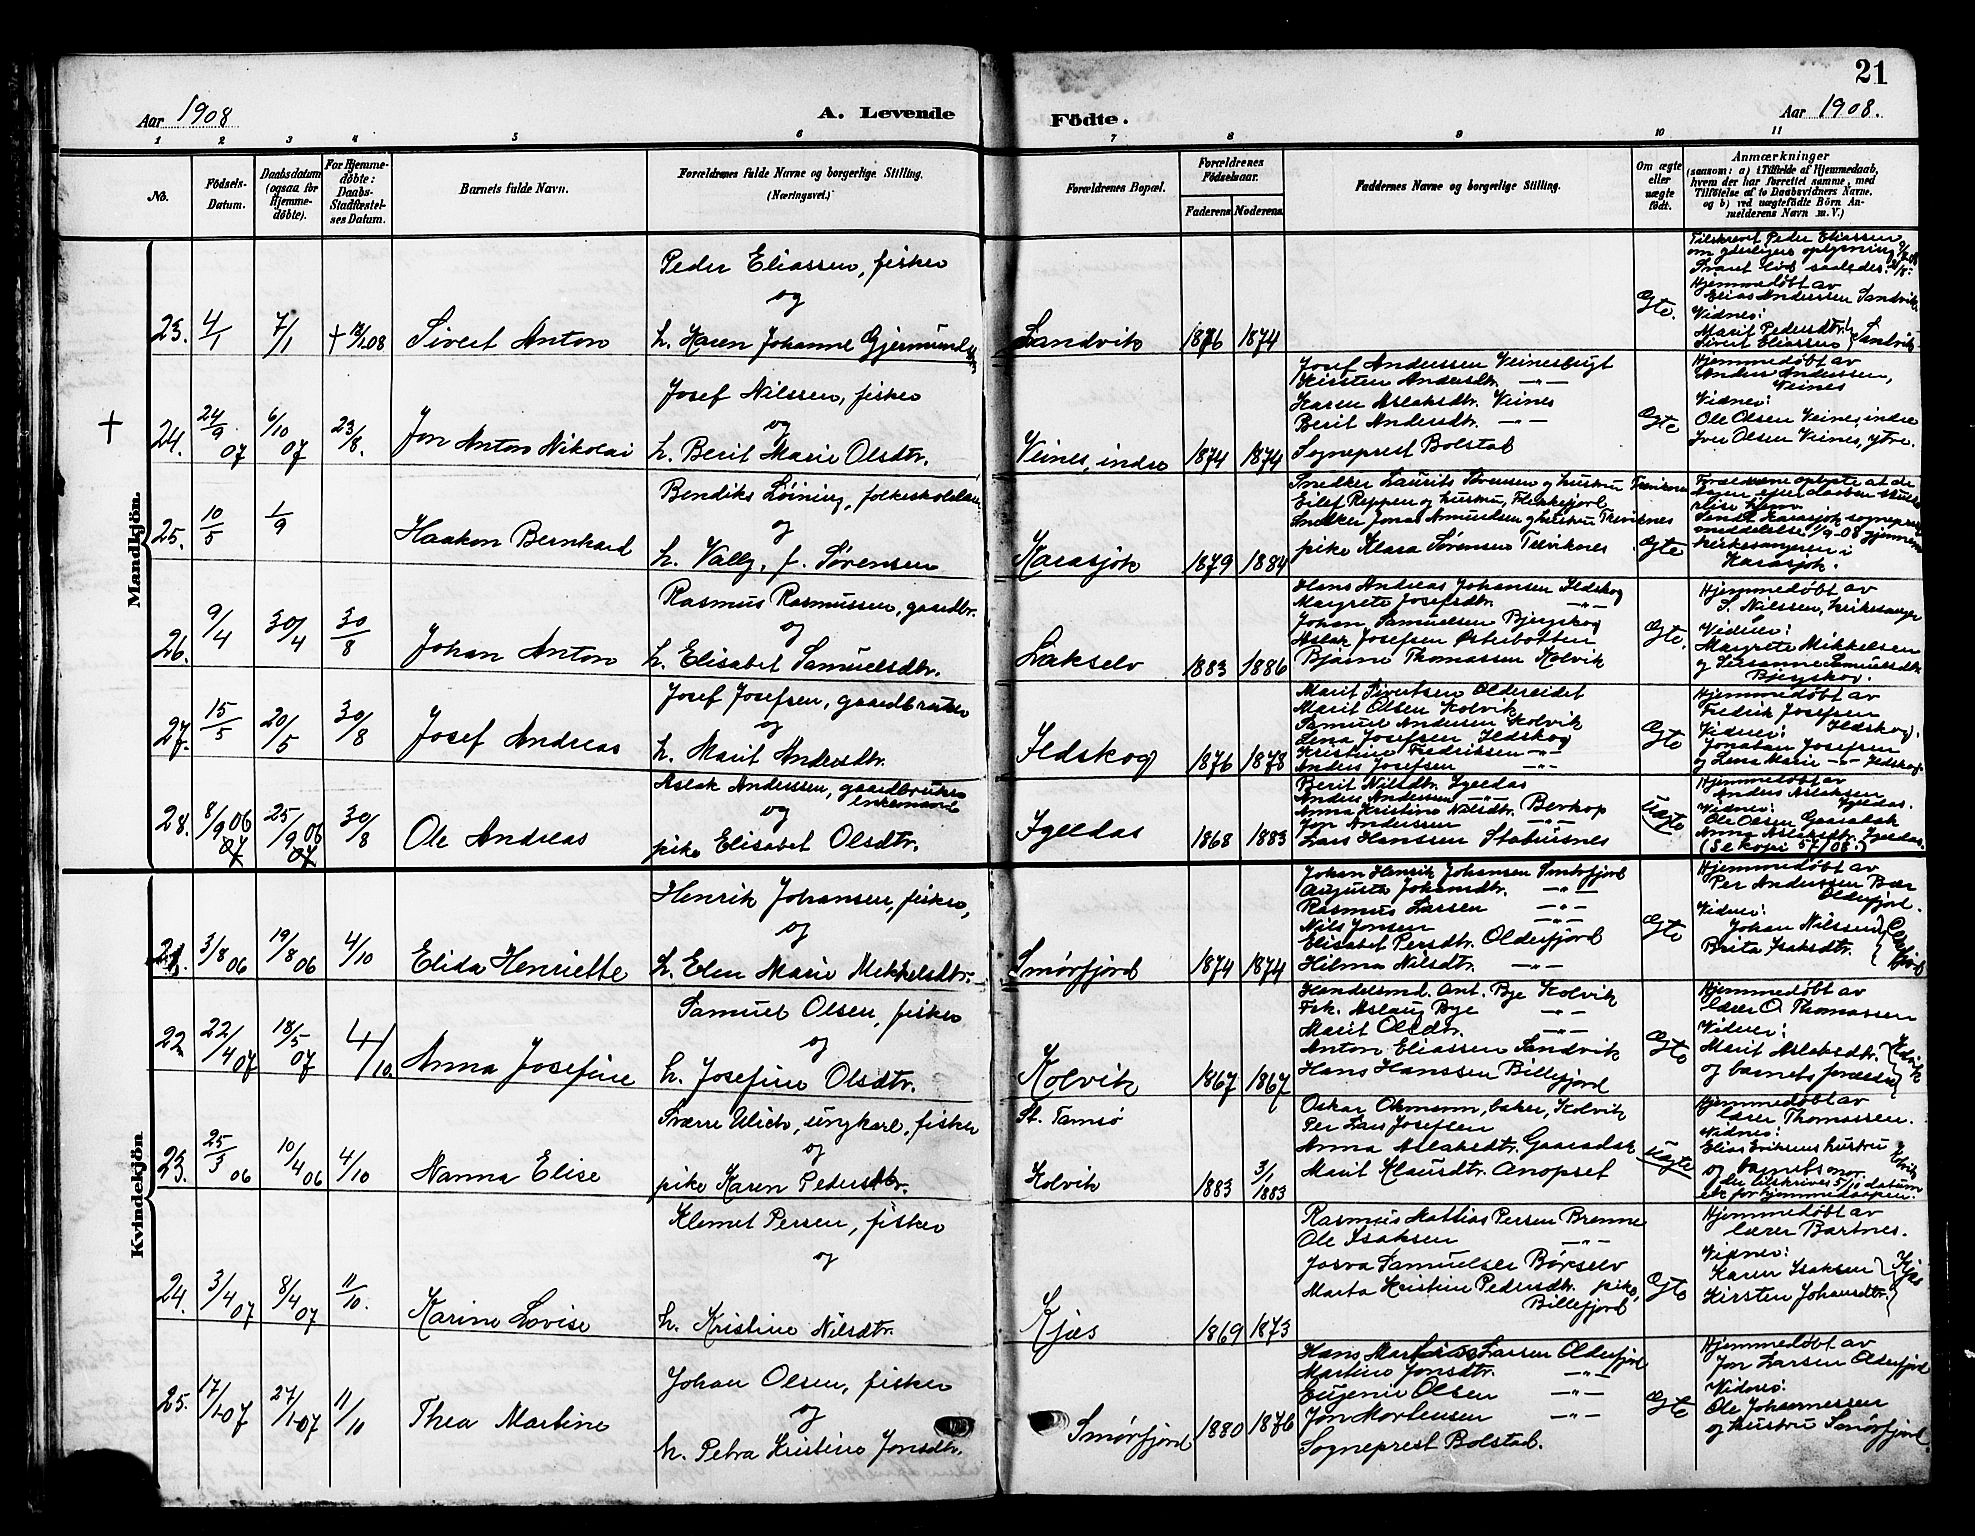 21
Aar 1908
A. Levende
Födte.
Aar 1908.
1 2 3 4 5 6 7 8 9 10 11
No.
Födsels-
Datum.
Daabsdatum
(ogsaa for
Hjemme-
döbte).
For Hjemme-
döbte:
Daabs-
Stadfæstel-
ses Datum.
Barnets fulde Navn.
Forældrenes fulde Navne og borgerlige Stilling.
(Næringsvei.)
Forældrenes Bopæl.
Forældrenes
Födselsaar.
Faderens. Moderens.
Faddernes Navne og borgerlige Stilling.
Om ægte
eller
uægte
födt.
Anmærkninger
(saasom: a) i Tilfælde af Hjemmedaab,
hvem der har forrettet samme, med
Tilföielse af to Daabsvidners Navne,
og b) ved uægtefödte Börn An-
melderens Navn m. V.)
Mandkjön.
23. 4/1 7/1 + 12/1 08 Sivert Anton
Peder Eliassen, fisker
og
h. Karen Johanne Gjermundsdtr
Sandvik 1876 1874
Ægte.
Tilskrevet Peder Eliassen
om yderligere oplysning
Svaret lød saaledes:
Hjemmedøbt av
Elias Anderssen Sandvik
Vidner:
Marit Pedersdtr.
Sivert Eliassen } Sandvik
+
24. 24/9 07 6/10 07 23/8. Jon Anton Nikolai
Josef Nilssen, fisker
og
h. Berit Marie Olsdtr.
Veines, indre 1874 1874
Josef Anderssen Veinesbugt
Kirsten Andersdtr. -"-
Karen Aslaksdtr. Veines
Berit Andersdtr. -"-
Sogneprest Bolstad
Ægte
Hjemmedøbt av
Anders Anderssen,
Veines
Vidner:
Ole Olsen Veines, indre
Iver Olsen Veines, ytre.
25. 10/5 1/9 Haakon Bernhard
Bendiks Løining, folkeskolelærer
og
h. Vally, f. Sørensen
Karasjok 1879 1884
Snedker Laurits Sørensen og hustru
Eilef Reppen og hustru, Flekkefjord
Snedker Jonas Amundsen og hustru
pike Klara Sørensen
Ægte
Forældrene oplyste at de
efter daaben skulde
reise hjem.
Sendt Karasjok sogneprest
meddelelse 1/9-08 gjennem
kirkesangeren i
Karasjok.
26. 9/4 30/4 30/8 Johan Anton
Rasmus Rasmussen, gaardbr.
og
h. Elisabet Samuelsdtr.
Lakselv 1883 1886
Hans Andreas Johansen Ildskog
Margrete Josefsdtr. -"-
Johan Samuelsen Bjergskog
Aslak Josefsen Østerbotten
Bjarne Thomassen Kolvik
Ægte.
Hjemmedøbt av
S. Nilssen, kirkesanger
Vidner:
Margrete Mikkelsen
og Susanne Samuelsdtr
Bjergskog.
27. 15/5 20/5 30/8 Josef Andreas
Josef Josefsen, gaardbruker
og
h. Marit Andersdtr.
Ildskog 1876 1878
Marit Sivertsen Oldereidet
Marit Olsen Kolvik
Samuel Andersen Kolvik
Lena Josefsen Ildskog
Kristine Fredriksen -"-
Anders Josefsen -"-
Ægte
Hjemmedøbt av
Fredrik Josefsen
Vidner: Ildskog.
Jonatan Josefsen
og Lena Marie -"- Ildskog.
28. 8/9 06 07 25/9 06 07 30/8 Ole Andreas
Aslak Anderssen, gaardbruker
enkemand
og
pike Elisabet Olsdtr.
Igeldas 1868 1883
Berit Nilsdtr. Igeldas
Anders Andersen -"-
Anna Kristine Nilsdtr. Berkop
Jon Anderssen -"-
Lars Hanssen Stabursnes
Uægte
Hjemmedøbt av
Anders Aslaksen
Vidner: Igeldas.
Ole Olsen Gaaradak
Anna Aslaksdtr. Igeldas.
(Se kopi 57/08.)
Kvindekjön
21. 3/8 06 19/8 06 4/10 Elida Henriette
Henrik Johansen, fisker,
og
h. Elen Marie Mikkelsdtr.
Smørfjord 1874 1874
Johan Henrik Johansen Smørfjord
Augusta Johansdtr. -"-
Rasmus Larsen -"-
Nils Jonsen -"-
Elisabet Persdtr. Olderfjord
Hilma Nilsdtr. -"-
Ægte
Hjemmedøbt av
Per Anderssen Bær
Olderfjord.
Vidner:
Johan Nilssen
Brita Isaksdtr.
22 22/4 07 18/5 07 4/10. Anna Josefine
Samuel Olsen, fisker
og
h. Josefine Olsdtr.
Kolvik 1867 1867
Handelsmd. Ant. Bye Kolvik
Frk. Aslaug Bye -"-
Marit Olsdtr. -"-
Anton Eliassen Sandvik
Hans Hanssen Billefjord
Ægte
Hjemmedøbt av
lærer O Thomassen
Vidner:
Marit Aslaksdtr.
og barnets forældre } Kolvik
23. 25/3 06 10/4 06 4/10 Nanna Elise
Sværre Ulich, ungkarl, fisker
og
pike Karen Pedersdtr.
St. Tamsø
Kolvik 1883 3/1 1883
Oskar Okmann, baker, Kolvik
Per Lars Josefsen
Anna Aslaksdtr. Gaaradak
Marit Klausdtr. Anopset
Uægte
Hjemmedøbt av
lærer Thomassen.
Vidner:
Elias Eriksens hustru
og barnets mor Kolvik
24. 3/4 07 8/4 07 11/10. Karine Lovise
Klemet Persen, fisker
og
h. Kristine Nilsdtr.
Kjæs 1869 1873
Rasmus Mattias Persen Brenne
Ole Isaksen -"-
Josva Samuelsen Børselv
Marta Kristine Pedersdtr. pike,
Billefjord
Ægte
Hjemmedøbt av
lærer Bartnes.
Vidner:
Karen Isaksen
Kirsten Johansdtr. } Kjæs
25. 17/1 07 27/1 07 11/10 Thea Martine
Johan Olsen, fisker
og
h. Petra Kristine Jonsdtr.
Smørfjord 1880 1876
Hans Larsen Olderfjord
Martine Jonsdtr. -"-
Eugenie Olsen -"-
Jon Mortensen -"-
Sogneprest Bolstad.
Ægte
Hjemmedøbt av
Jon Larsen Olderfjord
Vidner:
Ole Johannessen
og hustru Smørfjord.